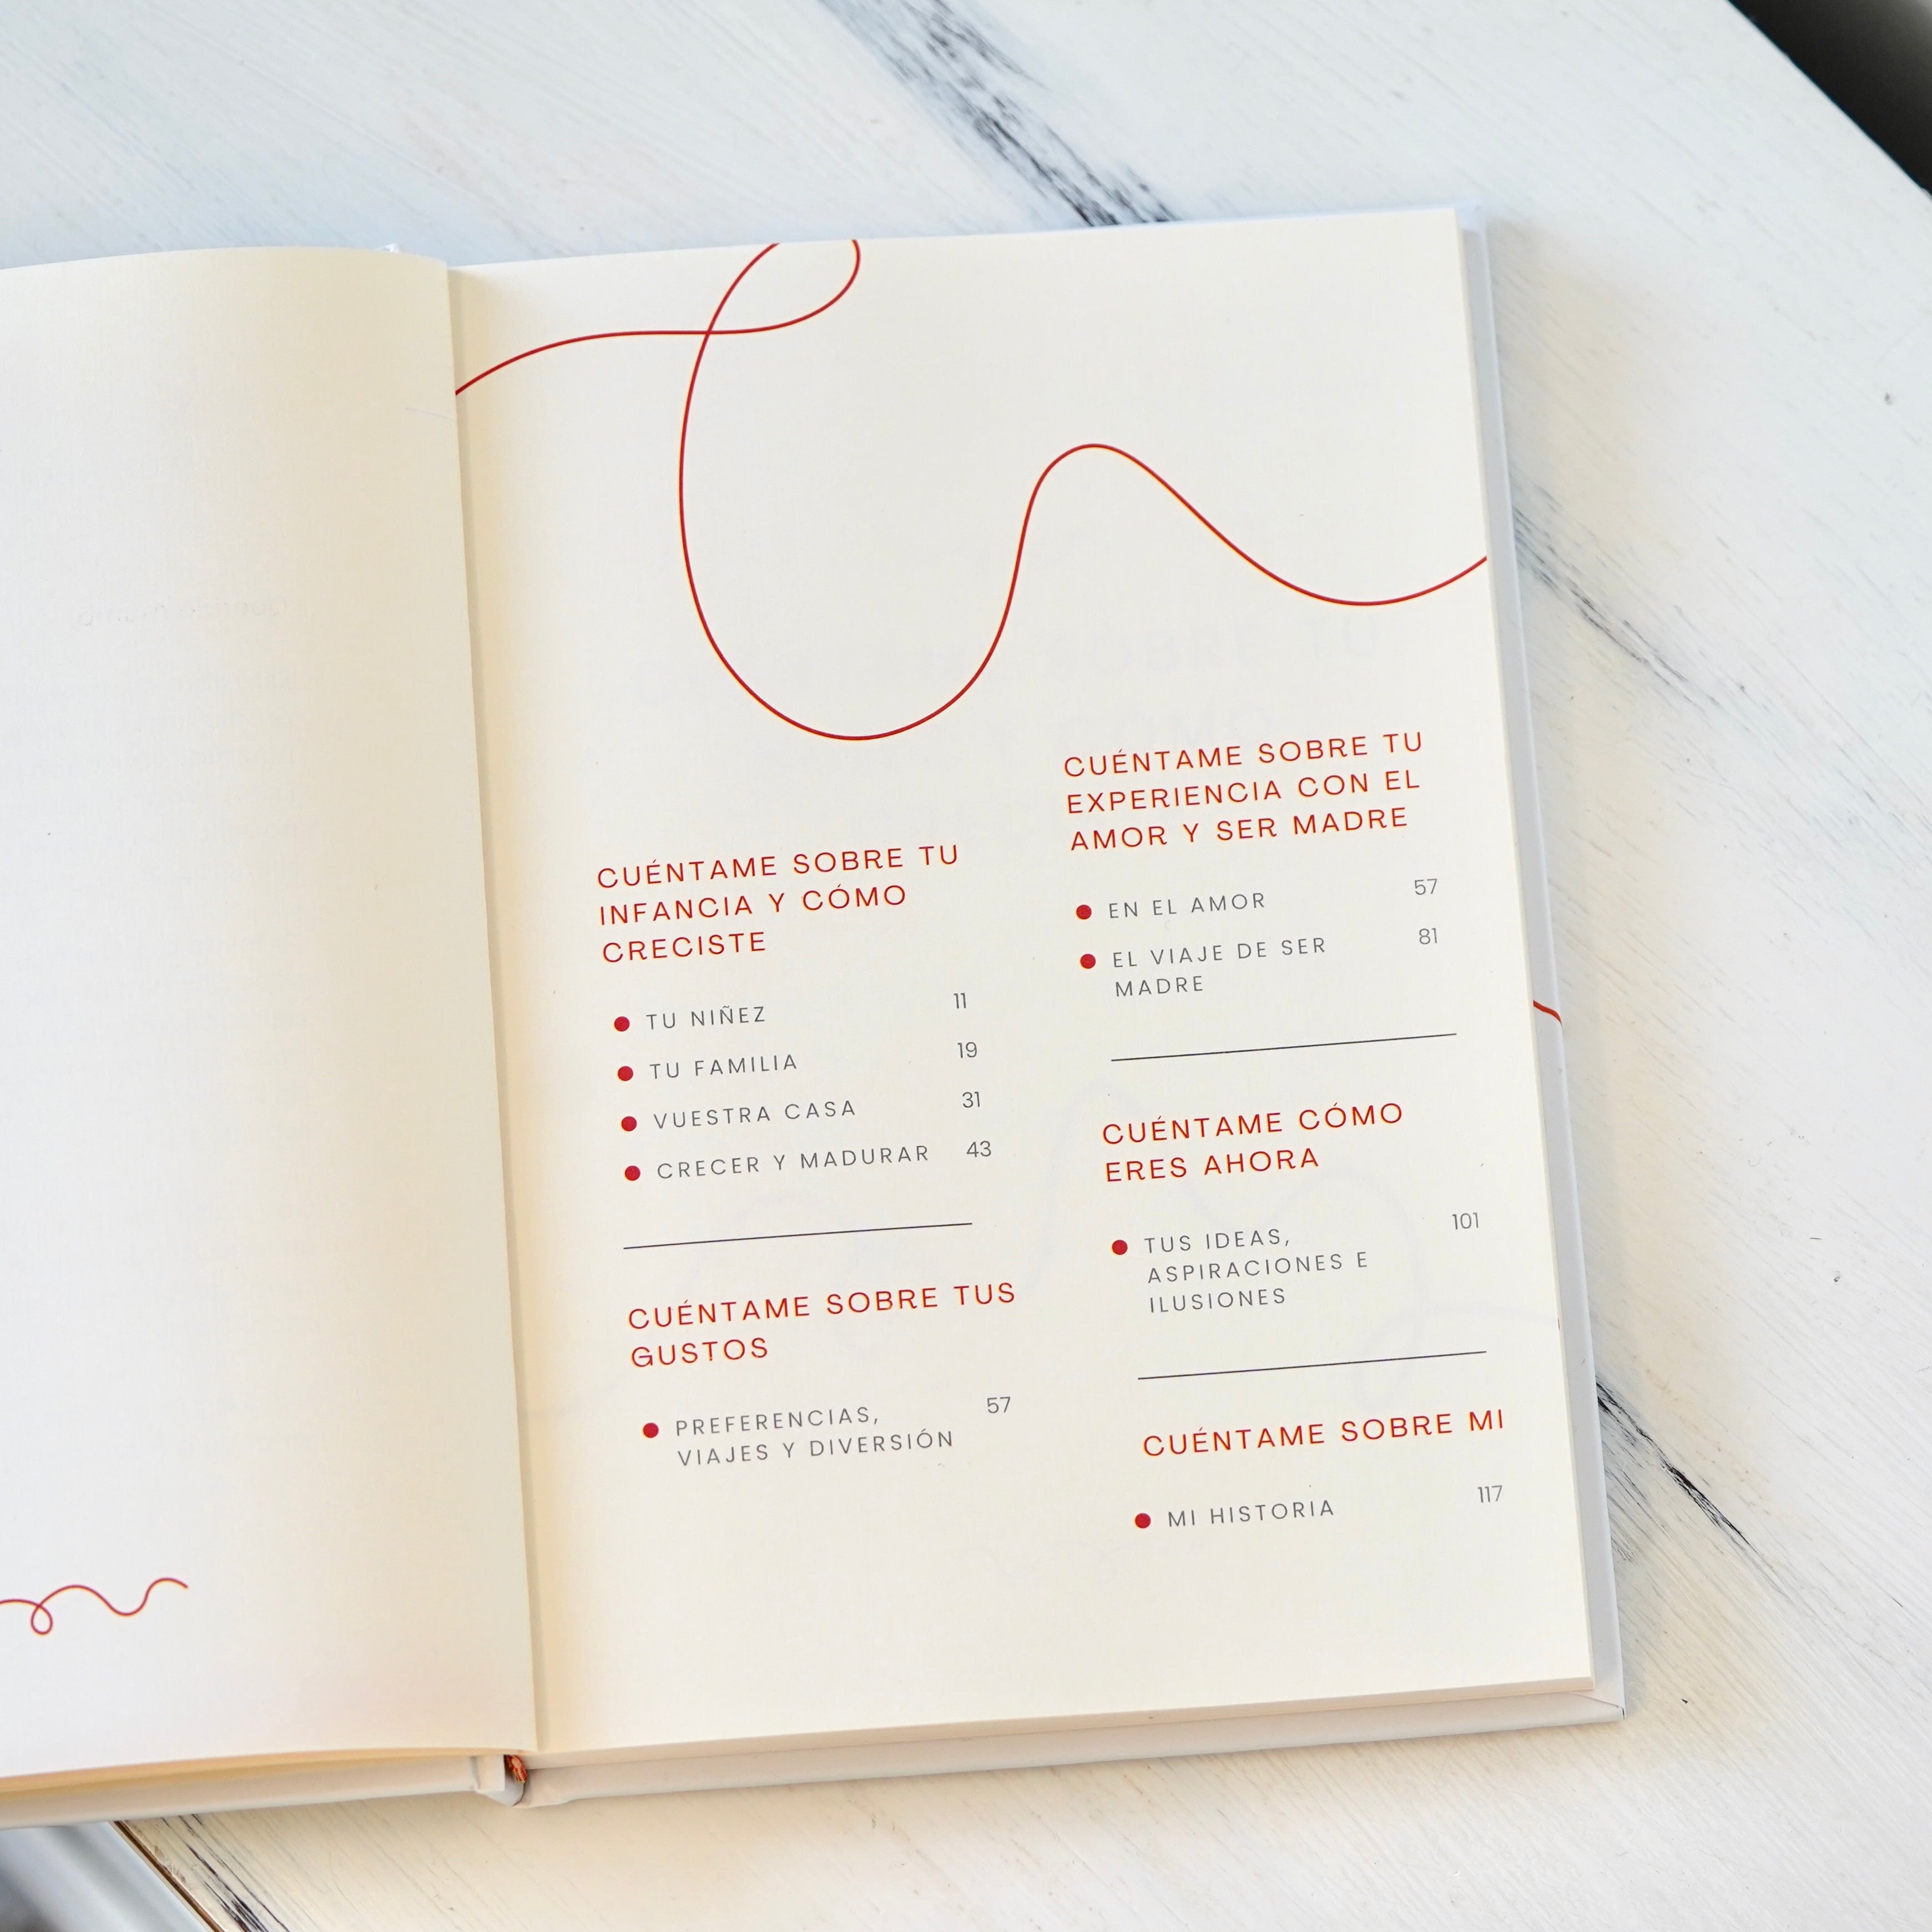 CUÉNTAME SOBRE TU
INFANCIA Y CÓMO
CRECISTE
TU NIÑEZ 11
TU FAMILIA 19
VUESTRA CASA 31
CRECER Y MADURAR 43
CUÉNTAME SOBRE TUS
GUSTOS
PREFERENCIAS, 57
VIAJES Y DIVERSIÓN
CUÉNTAME SOBRE TU
EXPERIENCIA CON EL
AMOR Y SER MADRE
EN EL AMOR 57
EL VIAJE DE SER 81
MADRE
CUÉNTAME CÓMO
ERES AHORA
TUS IDEAS, 101
ASPIRACIONES E
ILUSIONES
CUÉNTAME SOBRE MI
MI HISTORIA 117